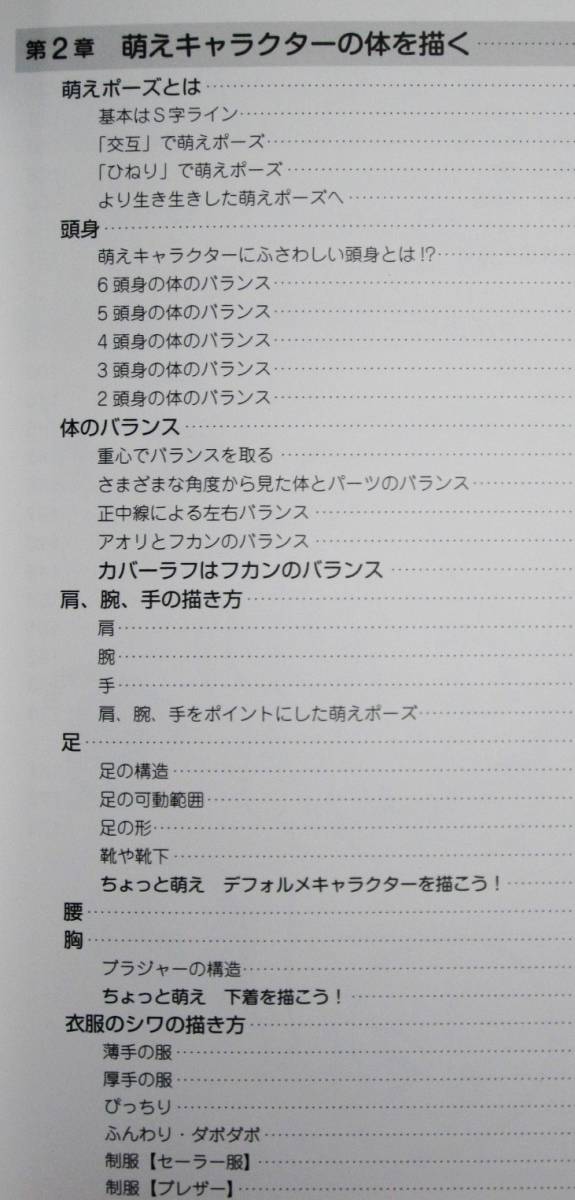 第2章 萌えキャラクターの体を描く
萌えポーズとは
基本はS字ライン
「交互」で萌えポーズ
「ひねり」で萌えポーズ
より生き生きした萌えポーズへ
頭身
萌えキャラクターにふさわしい頭身とは!?
6頭身の体のバランス
5頭身の体のバランス
4頭身の体のバランス
3頭身の体のバランス
2頭身の体のバランス
体のバランス
重心でバランスを取る
さまざまな角度から見た体とパーツのバランス
正中線による左右バランス
アオリとフカンのバランス
カバーラフはフカンのバランス
肩、腕、手の描き方
肩
腕
手
肩、腕、手をポイントにした萌えポーズ
足
足の構造
足の可動範囲
足の形
靴や靴下
ちょっと萌え デフォルメキャラクターを描こう!
腰
胸
ブラジャーの構造
ちょっと萌え 下着を描こう!
衣服のシワの描き方
薄手の服
厚手の服
ぴっちり
ふんわり・ダボダボ
制服【セーラー服】
制服【ブレザー】